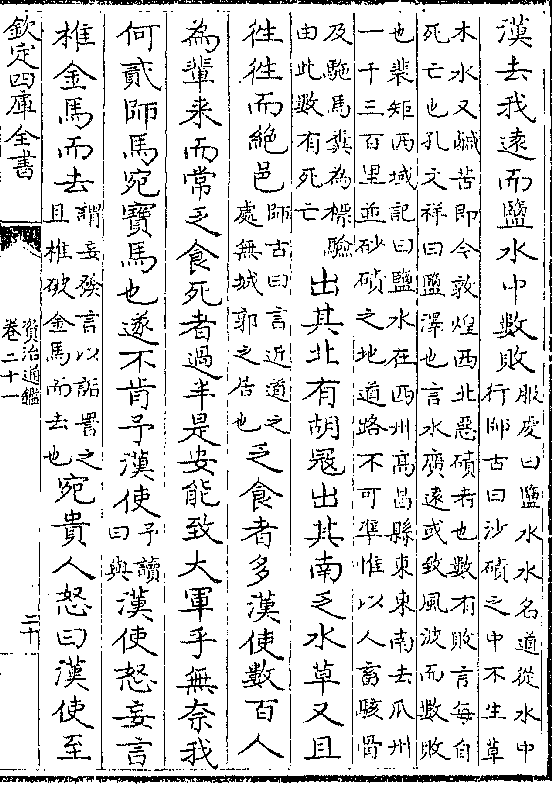 漢去我遠而鹽水中數敗服虔曰鹽水水名道從水中行師古曰沙磧之中不生草
木水又鹹苦即今敦煌西北惡磧者也數有敗言每自死亡也孔文祥曰鹽澤也言水廣遠或致風波而數敗
也裴矩西域記曰鹽水在西州高昌縣東東南去瓜州一千三百里並砂磧之地道路不可準惟以人畜骸骨
及駞馬糞為標驗由此數有死亡出其北有胡冦出其南乏水草又且
徃徃而絶邑師古曰言近道之處無城郭之居也乏食者多漢使數百人
為輩来而常乏食死者過半是安能致大軍乎無奈我
何貳師馬宛寶馬也遂不肯予漢使予讀曰與漢使怒妄言
椎金馬而去謂妄發言以詬詈之且椎破金馬而去也宛貴人怒曰漢使至
欽定四庫全書
資治通鑑
卷二十一
二十